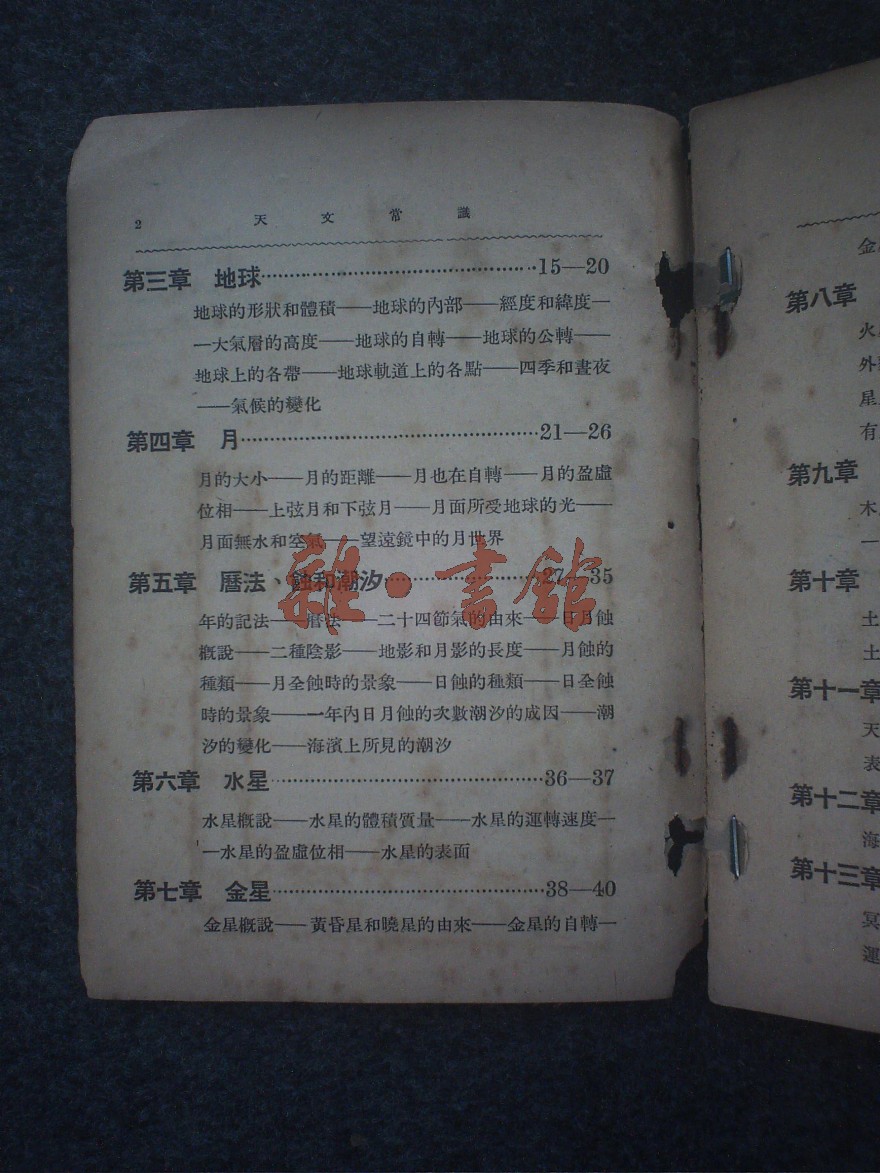 2 天文常識
第三章 地球·····15—20
地球的形狀和體積——地球的內部——經度和緯度—
—大氣層的高度——地球的自轉——地球的公轉——
地球上的各帶——地球軌道上的各點——四季和晝夜
——氣候的變化
第四章 月·····21—26
月的大小——月的距離——月也在自轉——月的盈虛
位相——上弦月和下弦月——月面所受地球的光——
月面無水和空氣——望遠鏡中的月世界
第五章 曆法、蝕和潮汐·····27—35
年的記法——曆法——二十四節氣的由來——日月蝕
概說——二種陰影——地影和月影的長度——月蝕的
種類——月全蝕時的景象——日蝕的種類——日全蝕
時的景象——一年內日月蝕的次數潮汐的成因——潮
汐的變化——海濱上所見的潮汐
第六章 水星·····36—37
水星概說——水星的體積質量——水星的運轉速度—
—水星的盈虛位相——水星的表面
第七章 金星·····38—40
金星概說——黃昏星和曉星的由來——金星的自轉—
雜·書館
金
第八章
火
外
星
有
第九章
木
—
第十章
土
土
第十一章
天
表
第十二章
海
第十三章
冥
運